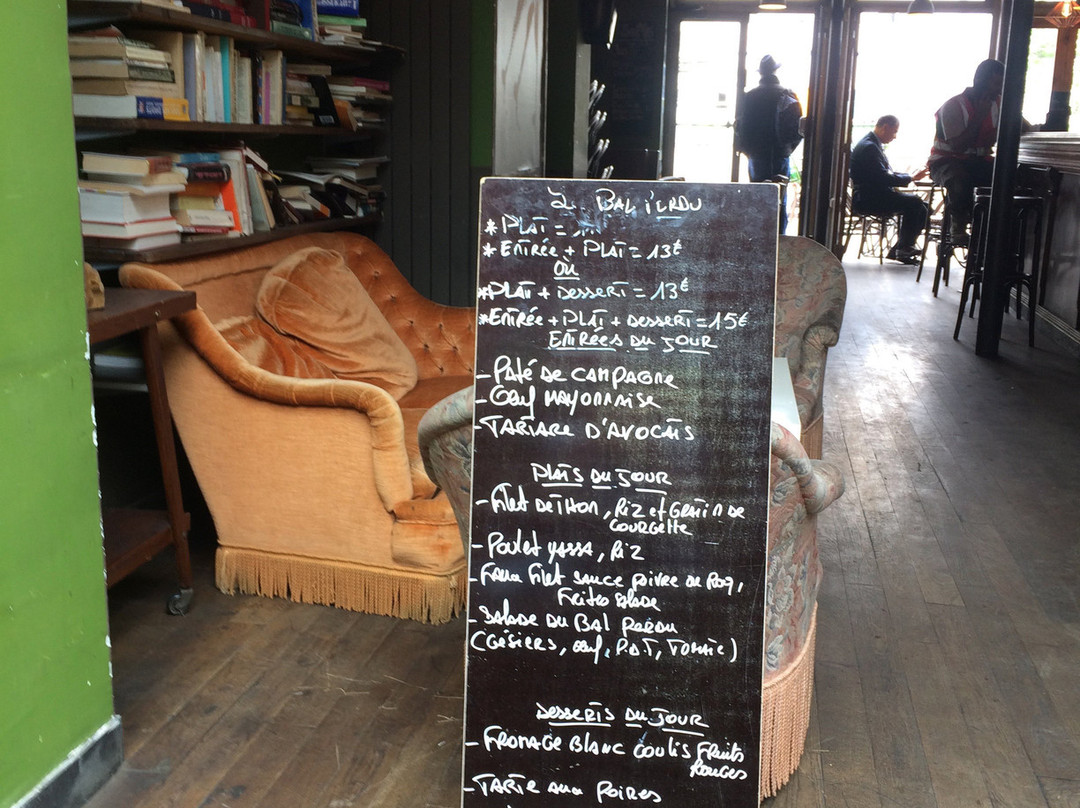 BAL PERDU
* PLAT =
* ENTRÉE + PLAT = 13€
OÙ
* PLAT + DESSERT = 13€
* ENTRÉE + PLAT + DESSERT = 15€
ENTRÉES DU JOUR
- PATÉ DE CAMPAGNE
- Oeuf MAYONNAISE
- TARTARE D'AVOCATS
PLATS DU JOUR
- Filet DE THON, RIZ et GRATIN DE
COURGETTE
- Poulet YASSA, RIZ
- Faux Filet sauce poivre ou Roq,
Frites salade
- SALADE DU BAL PERDU
(GÉSIERS, oeuf, P.D.T, TOMATE)
DESSERTS DU JOUR
- FROMAGE BLANC COULIS FRUITS
ROUGES
- TARTE aux POIRES